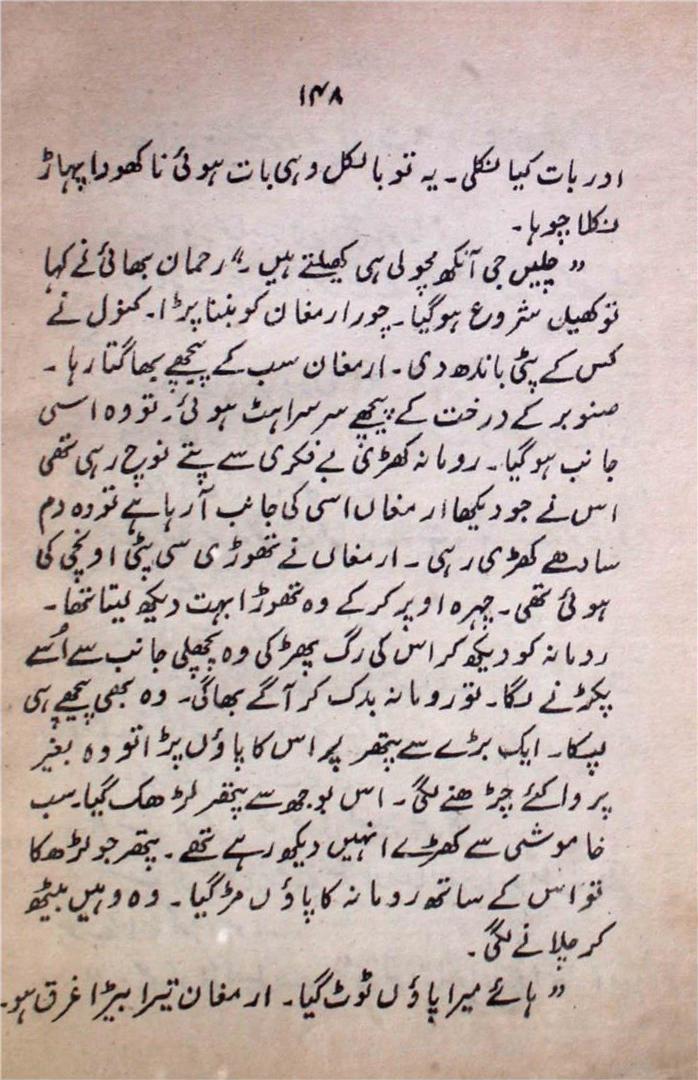 ۱۴۸
اور بات کیا نکلی۔ یہ تو بالکل وہی بات ہوئی نا کھودا پہاڑ
نکلا چوہا۔
”چلیں جی آنکھ مچولی ہی کھیلتے ہیں۔“ رحمان بھائی نے کہا
تو کھیل شروع ہوگیا۔ چور ارمغان کو بننا پڑا۔ کنول نے
کس کے پٹی باندھ دی۔ ارمغان سب کے پیچھے بھاگتا رہا۔
صنوبر کے درخت کے پیچھے سرسراہٹ ہوئی۔ تو وہ اسی
جانب ہوگیا۔ رومانہ کھڑی بے فکری سے پتے نوچ رہی تھی
اس نے جو دیکھا ارمغاں اسی کی جانب آرہا ہے تو وہ دم
سادھے کھڑی رہی۔ ارمغاں نے تھوڑی سی پٹی اونچی کی
ہوئی تھی۔ چہرہ اوپر کرکے وہ تھوڑا بہت دیکھ لیتا تھا۔
رومانہ کو دیکھ کر اس کی رگ پھڑکی وہ پچھلی جانب سے اُسے
پکڑنے لگا۔ تو رومانہ بدک کر آگے بھاگی۔ وہ بھی پیچھے ہی
لپکا۔ ایک بڑے سے پتھر پر اس کا پاؤں پڑا تو وہ بغیر
پرواکئے چڑھنے لگی۔ اس بوجھ سے پتھر لڑھک گیا۔ سب
خاموشی سے کھڑے انہیں دیکھ رہے تھے۔ پتھر جو لڑھکا
تو اس کے ساتھ رومانہ کا پاؤں مڑ گیا۔ وہ وہیں بیٹھ
کر چلانے لگی۔
”ہائے میرا پاؤں ٹوٹ گیا۔ ارمغان تیرا بیڑا غرق ہو۔